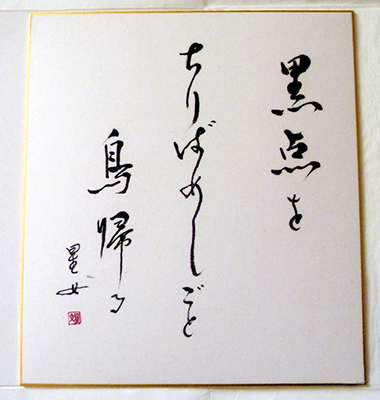 黒点を
ちりばめしごと
鳥帰る
星女